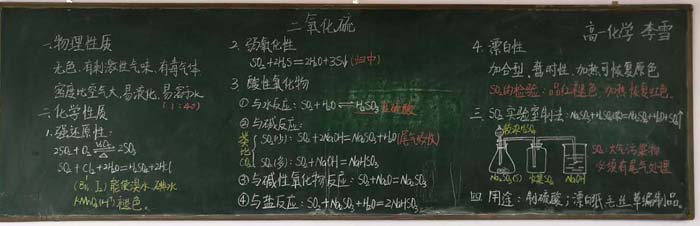 二氧化硫
高一化学 李雪
一、物理性质
无色、有刺激性气味、有毒气体
密度比空气大、易液化、易溶于水
(1:40)
二、化学性质
1. 强还原性:
2SO₂+O₂⇌2SO₃
SO₂+Cl₂+2H₂O=H₂SO₄+2HCl
(Br₂ I₂) 能使溴水 碘水
KMnO₄(H⁺)褪色。
2. 弱氧化性
SO₂+2H₂S=2H₂O+3S↓(归中)
3. 酸性氧化物
①与水反应: SO₂+H₂O⇌H₂SO₃ 亚硫酸
②与碱反应:
类比
SO₂(少): SO₂+2NaOH=Na₂SO₃+H₂O (尾气吸收)
CO₂ (多): SO₂+NaOH=NaHSO₃
③与碱性氧化物反应: SO₂+Na₂O=Na₂SO₃
④与盐反应: SO₂+Na₂SO₃+H₂O=2NaHSO₃
4. 漂白性
加合型、暂时性、加热可恢复原色
SO₂的检验: 品红褪色、加热恢复红色.
三、SO₂实验室制法: Na₂SO₃+H₂SO₄(浓)=Na₂SO₄+H₂O+SO₂↑
浓H₂SO₄
Na₂SO₃(s)
NaOH
SO₂ 大气污染物
必须有尾气处理
四 用途: 制硫酸; 漂白纸毛丝草编制品。